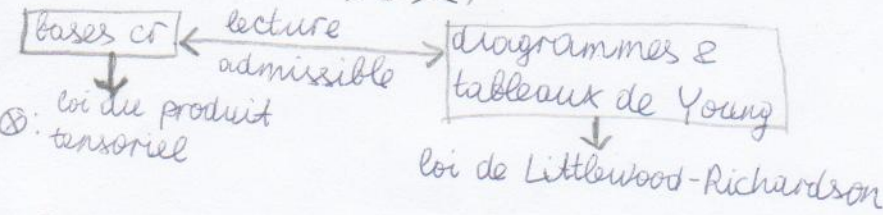 bases cr
lecture
admissible
diagrammes &
tableaux de Young
⊗: loi du produit
tensoriel
loi de Littlewood-Richardson